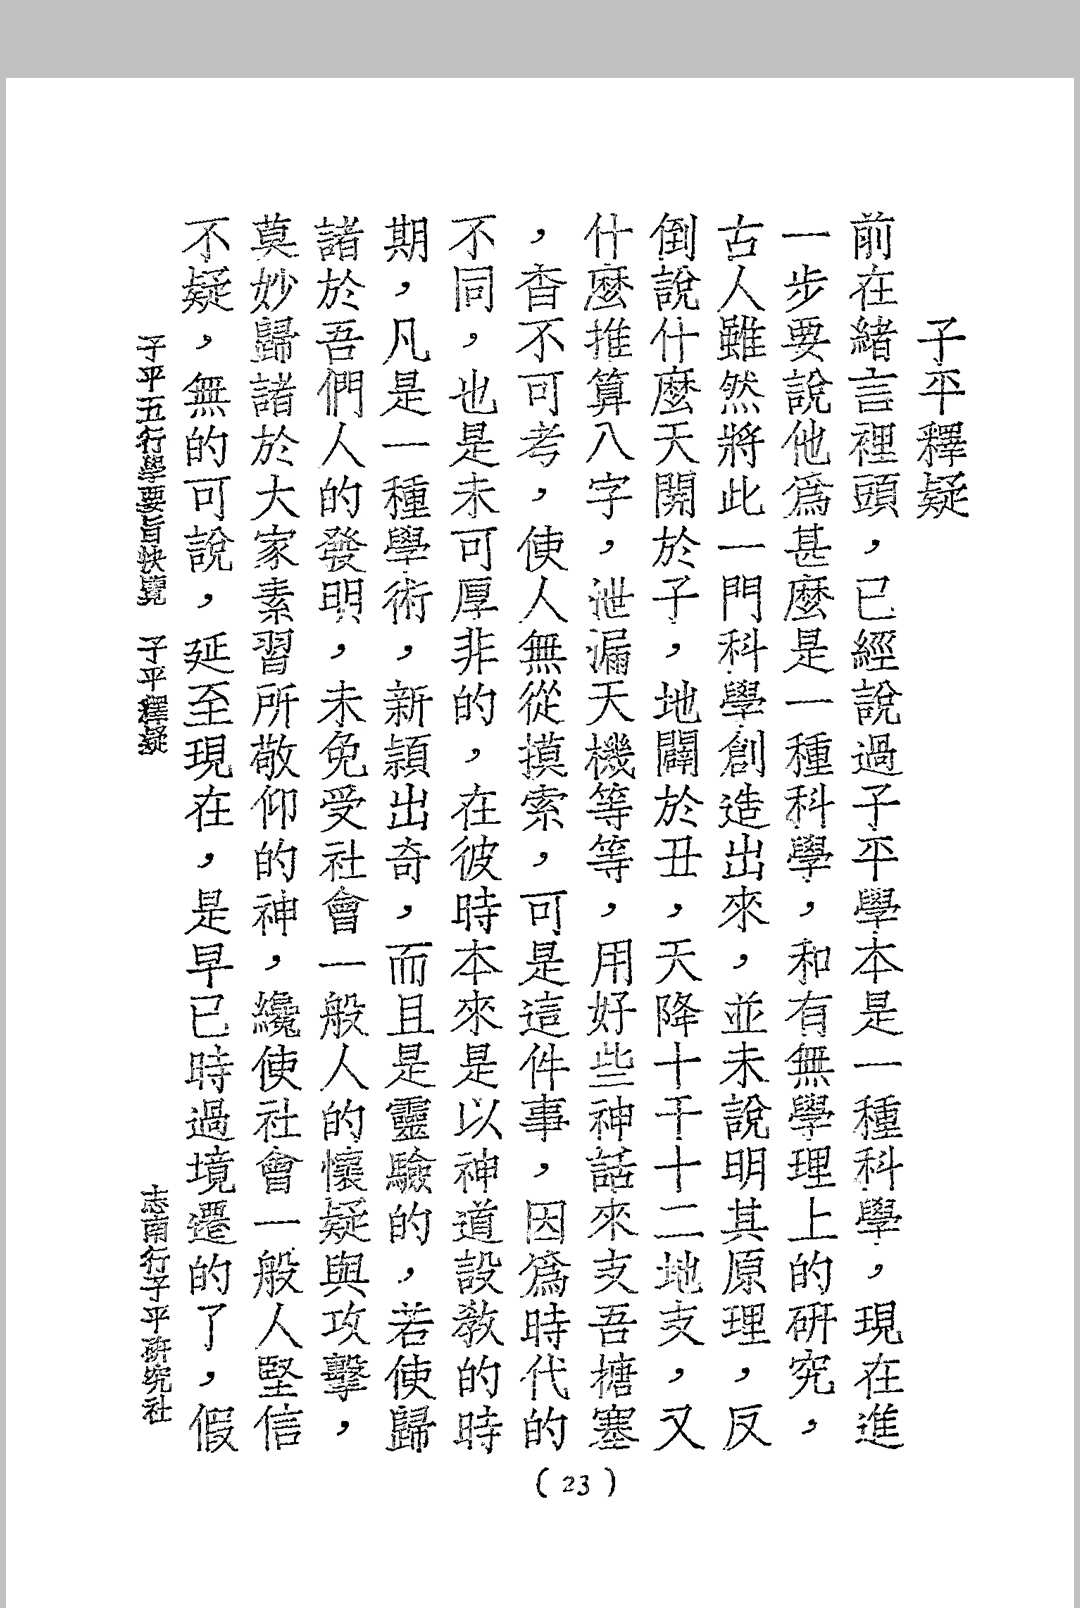 子平釋疑
前在緒言裡頭，已經說過子平學本是一種科學，現在進
一步要說他爲甚麼是一種科學，和有無學理上的研究，
古人雖然將此一門科學創造出來，並未說明其原理，反
倒說什麼天開於子，地闢於丑，天降十干十二地支，又
什麼推算八字，泄漏天機等等，用好些神話來支吾搪塞
，杳不可考，使人無從摸索，可是這件事，因爲時代的
不同，也是未可厚非的，在彼時本來是以神道設敎的時
期，凡是一種學術，新穎出奇，而且是靈驗的，若使歸
諸於吾們人的發明，未免受社會一般人的懷疑與攻擊，
莫妙歸諸於大家素習所敬仰的神，纔使社會一般人堅信
不疑，無的可說，延至現在，是早已時過境遷的了，假
子平五行學要旨快覽　子平釋疑　志南行子平硏究社
( 23 )